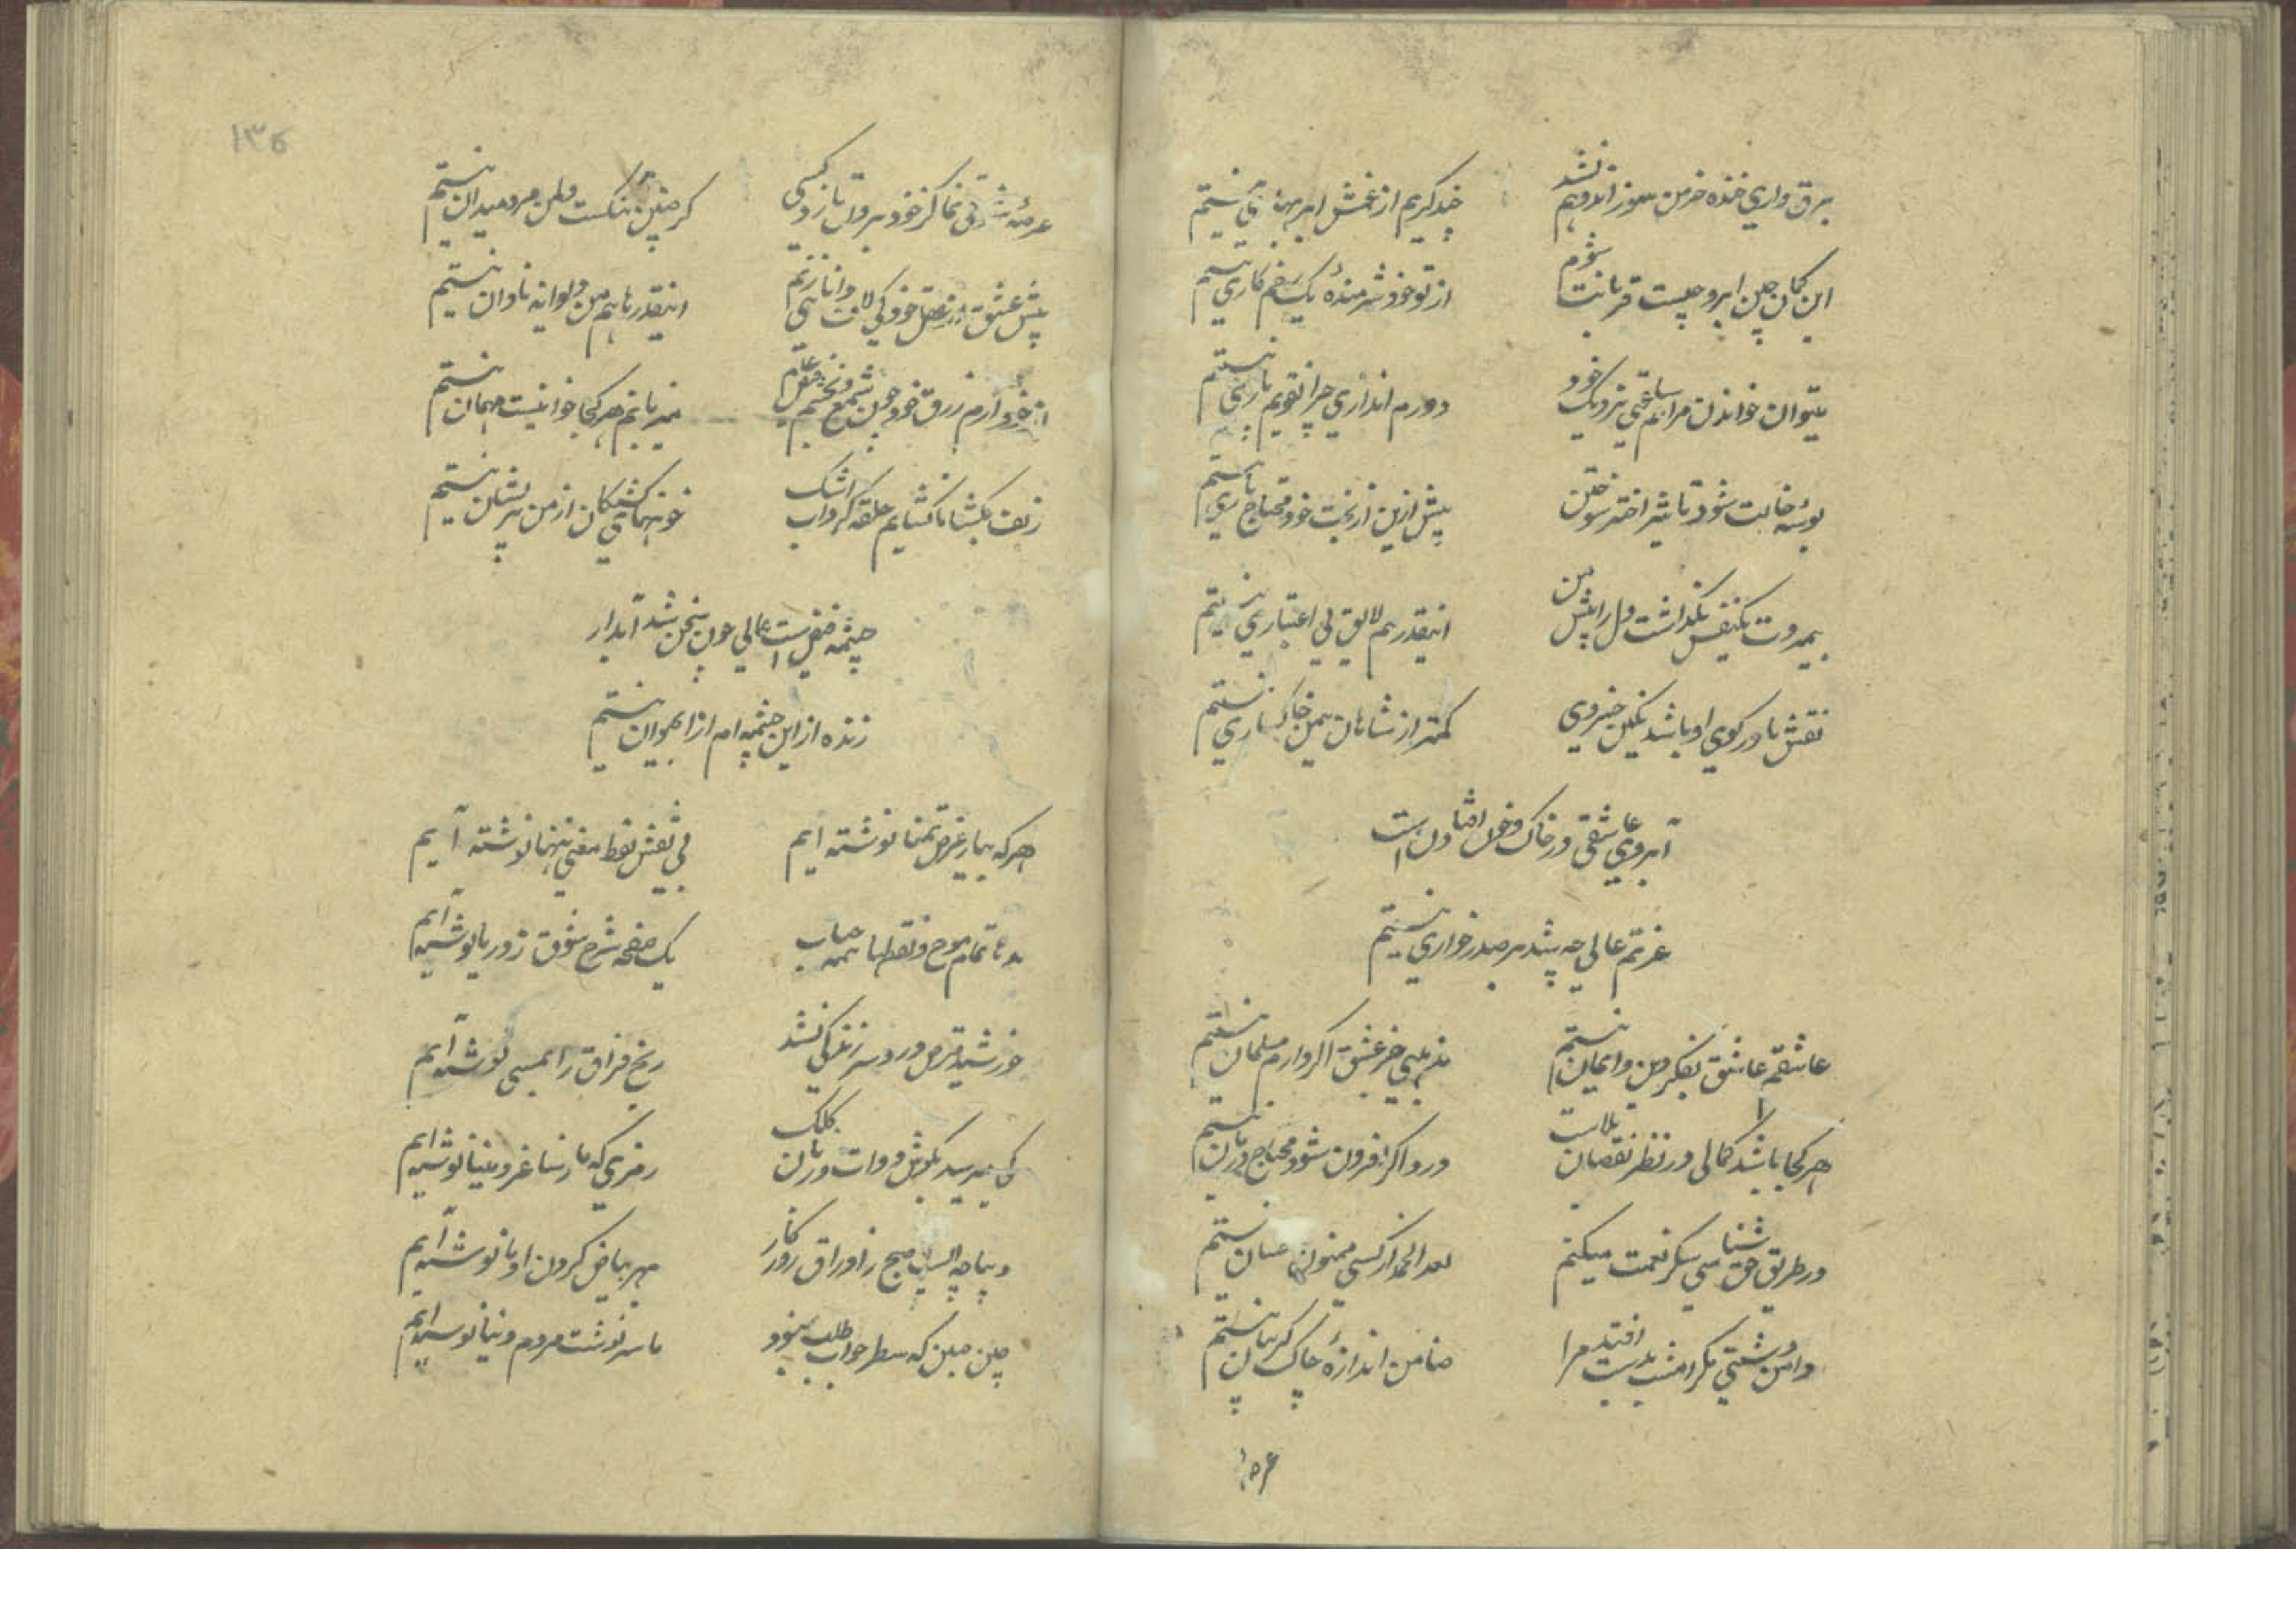 برق واری خنده خرمن سوز اندوهم نشد
چند گریم از غمش ابر بهاری نیستم
این کمان چین ابرو چیست قربانت شوم
از تو خود شرمندهٔ یک زخم کاری نیستم
میتوان خواندن مرا هم ساعتی نزدیک خود
دورم اندازی چرا تقویم پاری نیستم
بوسه خالت شود تاثیر اختر سوختن
بیش ازین از بخت خود محتاج یاری نیستم
بیمروت یکنفس نگذاشت دل را پیش من
اینقدر هم لایق بی اعتباری نیستم
نقش پا در کوی او باشد نگین خسروی
کمتر از شاهان بیمن خاکساری نیستم
آبروی عاشقی در خاک و خون افتادن است
عزتم عالی چه شد بر صدر خواری نیستم
عاشقم عاشق بفکر دین و ایمان نیستم
مذهبی جز عشق اگر دارم مسلمان نیستم
هر کجا باشد کمالی در نظر نقصان بلاست
درد اگر افزون شود محتاج درمان نیستم
در طریق حق شناسی شکر نعمت میکنم
لله الحمد از کسی ممنون احسان نیستم
دامن دشتی مگر امشب بدست افتد مرا
ضامن اندازهٔ چاک گریبان نیستم
عرصهٔ
۱۳۵
عرصهٔ کر خود برون تازد کسی
گر چنین مرد میدان نیستم
پیش عشق از عقل خود کی لاف دانائی زنم
اینقدرها هم من دیوانه نادان نیستم
از خود آرم رزق خود چون شمع در محفل
میزبانم هر کجا خوانیست مهمان نیستم
زلف بگشا تا گشایم حلقه گرداب اشک
خونبهای کشتگان از من پریشان نیستم
چشمه فیض است عالی چون سخن شد آبدار
زنده از این چشمه ام از آب حیوان نیستم
هر که بما ز عرض تمنا نوشته ایم
بی نقش نقط معنی تنها نوشته ایم
مدها تمام موج و نقطها همه حباب
یک صفحه شرح شوق ز دریا نوشته ایم
خورشید قرص درد سر زندگی نشد
رنج فراق را بمسیحا نوشته ایم
کی میرسد بگوش دوات و زبان کلک
رمزی که ما ز ساغر و مینا نوشته ایم
دیباچه السیت صبح ز اوراق روزگار
مهر بیاض گردن او تا نوشته ایم
چین جبین که سطر جواب طلب بود
ما سرنوشت مردم دنیا نوشته ایم